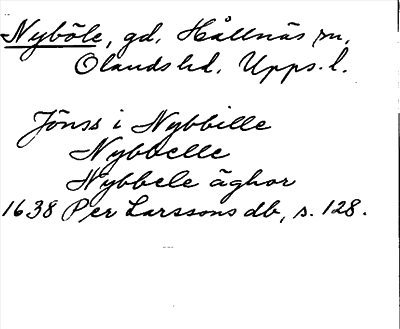 Nyböle, gd, Hållnäs sn,
Olands hd. Upps. l.
Jönss i Nybbille
Nybbelle
Nybbele äghor
1638 Per Larssons db, s. 128.